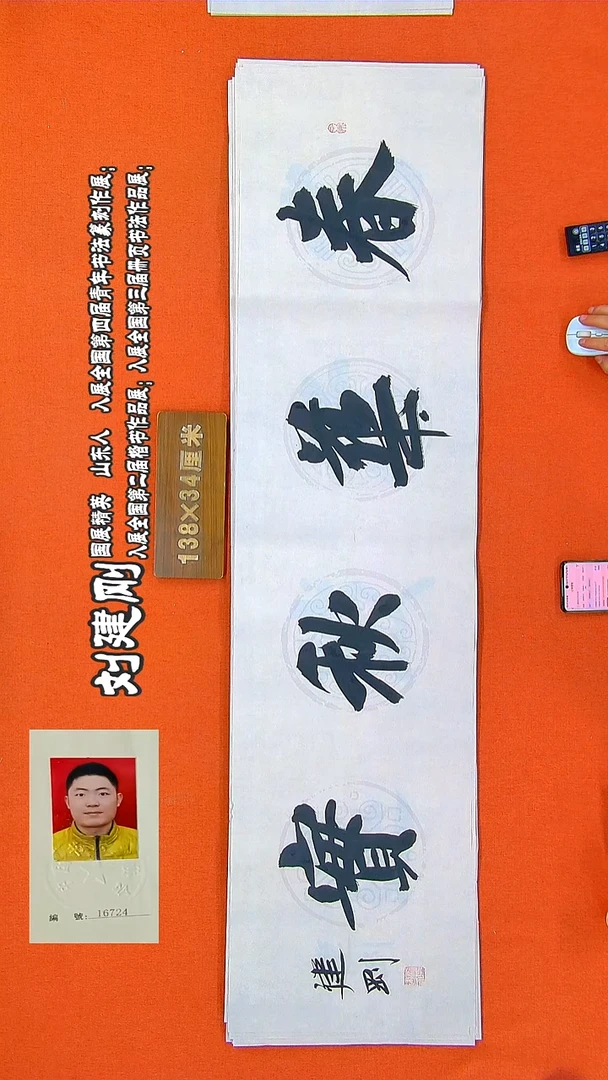 刘建刚
国展精英 山东人 入展全国第四届青年书法篆刻作展;
入展全国第二届楷书作品展; 入展全国第三届册页书法作品展;
138×34厘米
春華秋實
建剛
編 號: 16724